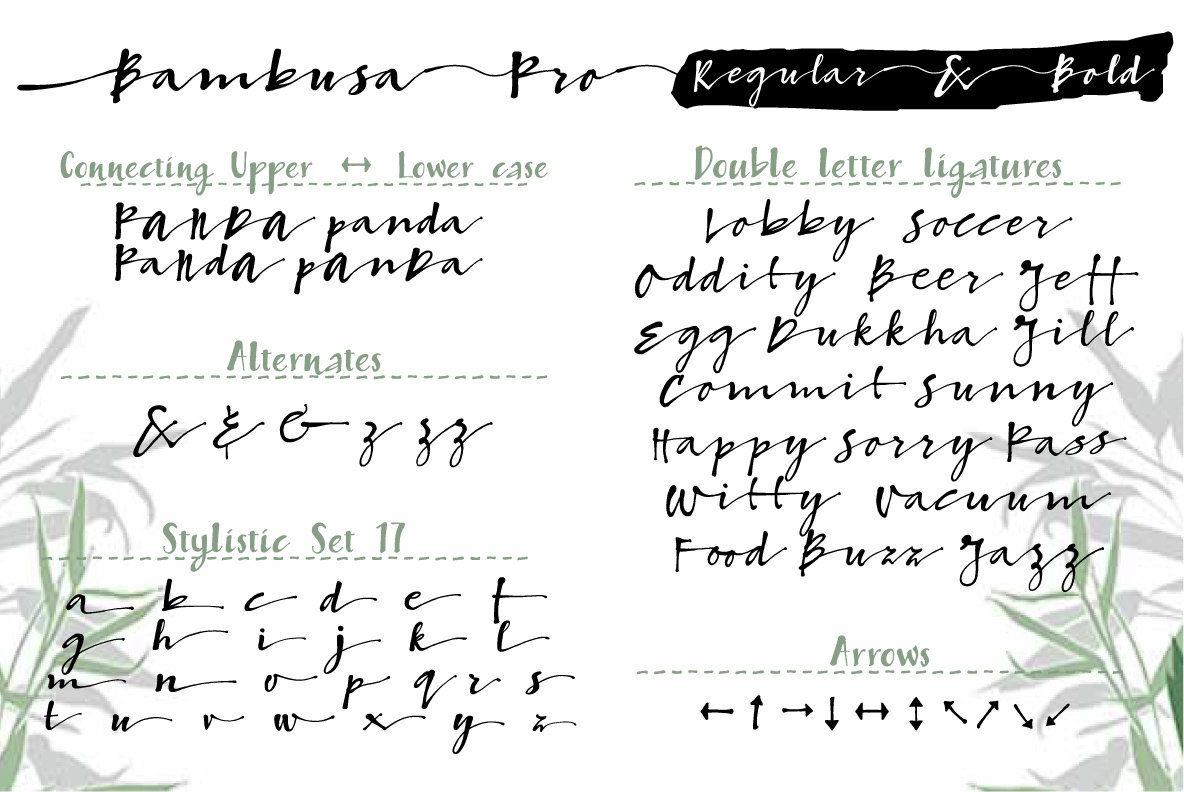 Bambusa Pro Regular & Bold
Connecting Upper ↔ Lower case
PANDA panda
PaNdA pAnDa
Alternates
& & & z zz
Stylistic Set 17
a b c d e f
g h i j k l
m n o p q r s
t u v w x y z
Double letter ligatures
Lobby Soccer
Oddity Beer Jeff
Egg Dukkha Jill
Commit Sunny
Happy Sorry Pass
Witty Vacuum
Food Buzz Jazz
Arrows
← ↑ → ↓ ↔ ↕ ↖ ↗ ↘ ↙